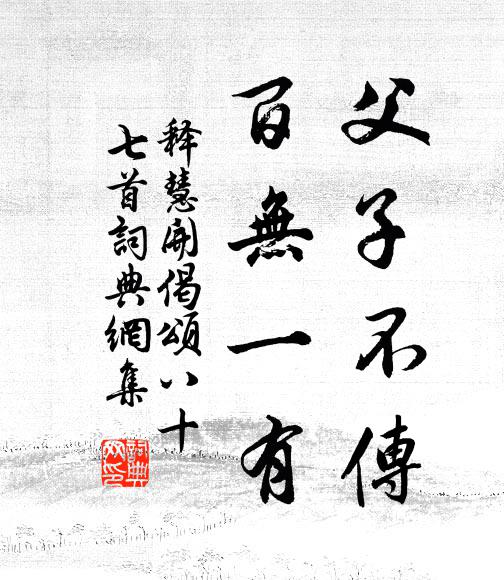 父子不傳
百無一有
释慧開偈頌八十
七首詞典網集